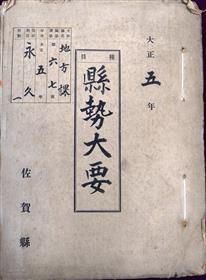 大正五年
種目
縣勢大要
地方課
六七
五
永久
一
佐賀縣